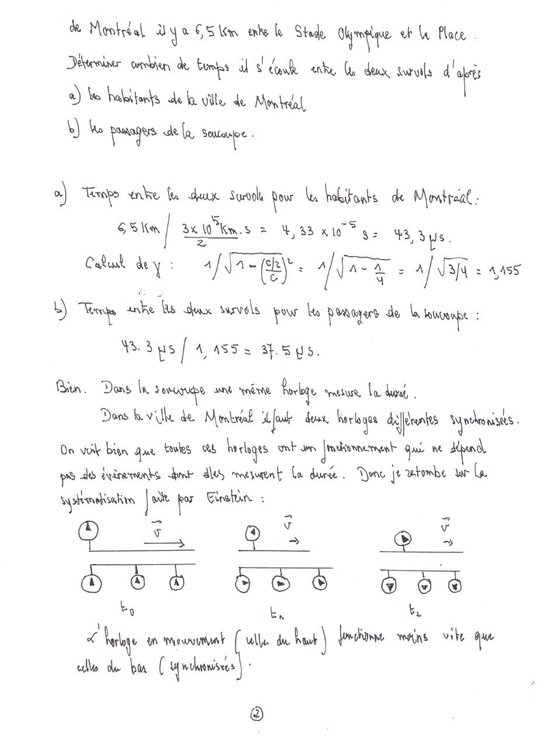 de Montréal il y a 6,5 km entre le Stade Olympique et la Place.
Déterminer combien de temps il s'écoule entre les deux survols d'après
a) les habitants de la ville de Montréal
b) les passagers de la soucoupe.
a) Temps entre les deux survols pour les habitants de Montréal :
6,5 km / (3 x 10⁵ km.s / 2) = 4,33 x 10⁻⁵ s = 43,3 µs.
Calcul de γ : 1/√(1 - ((c/2)/c)²) = 1/√(1 - 1/4) = 1/√(3/4) = 1,155
b) Temps entre les deux survols pour les passagers de la soucoupe :
43.3 µs / 1,155 = 37.5 µs.
Bien. Dans la soucoupe une même horloge mesure la durée.
Dans la ville de Montréal il faut deux horloges différentes synchronisées.
On voit bien que toutes ces horloges ont un fonctionnement qui ne dépend
pas des évènements dont elles mesurent la durée. Donc je retombe sur la
systématisation faite par Einstein :
v v v
t₀ t₁ t₂
L'horloge en mouvement (celle du haut) fonctionne moins vite que
celles du bas (synchronisées).
2